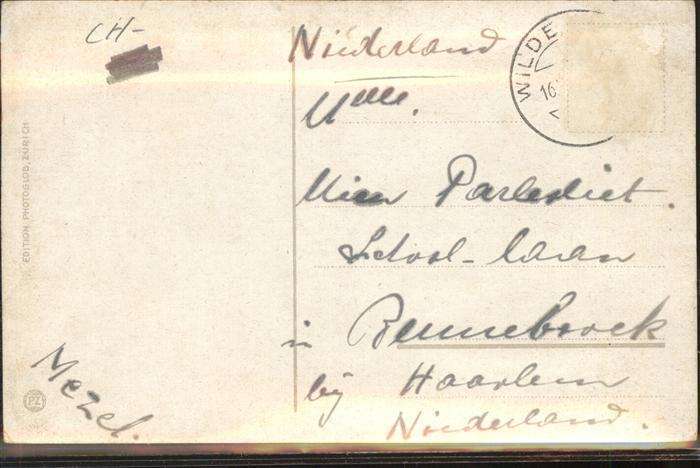 CH-
Niederland
WILDE
16.
Mlle.
Mien
School-laan
in Bennebroek
bij Haarlem
Niederland.
Mezel.
EDITION PHOTOGLOB, ZÜRICH
PZ